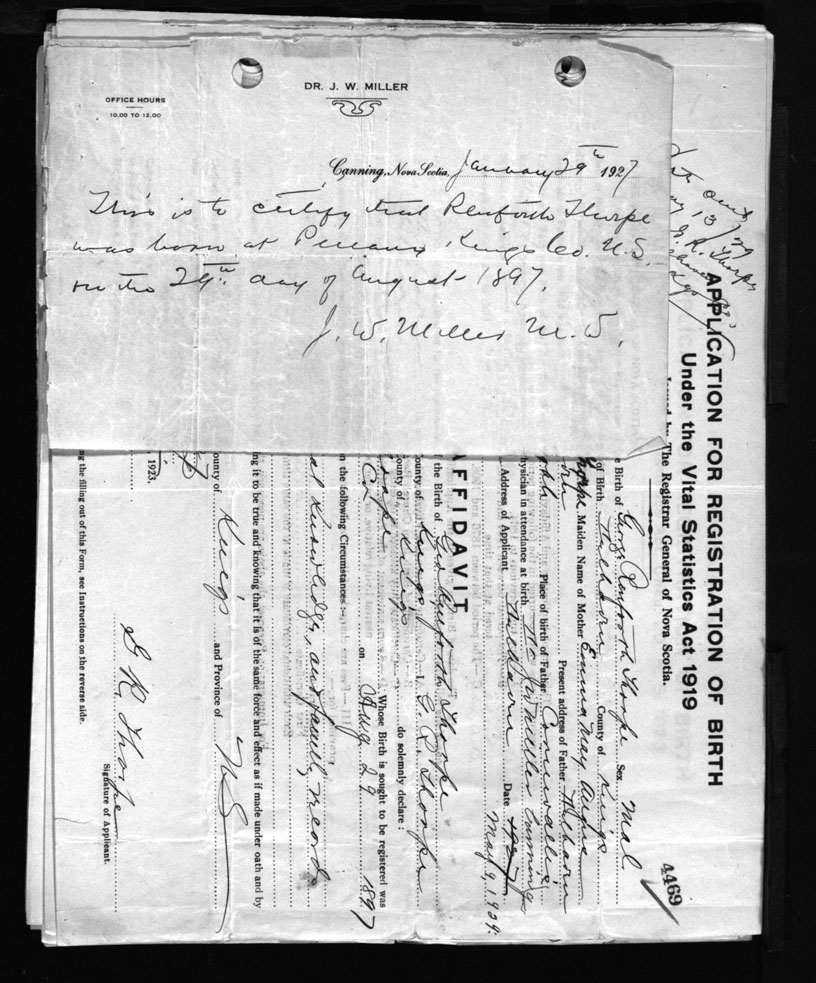 DR. J. W. MILLER
OFFICE HOURS
10.00 TO 12.00
Canning, Nova Scotia, January 29th 1927
This is to certify that Renforth Thorpe
was born at Pereaux Kings Co. N.S.
on the 29th day of August 1897.
J. W. Miller M.D.
APPLICATION FOR REGISTRATION OF BIRTH
Under the Vital Statistics Act 1919
Issued by The Registrar General of Nova Scotia.
4469
Birth of George Renforth Thorpe Sex Mal
of Birth County of Kings
Thorpe Maiden Name of Mother Emma May
Present address of Father
Place of birth of Father Cornwallis
hysician in attendance at birth
Address of Applicant Date May 9, 1929.
AFFIDAVIT
the Birth of Geo. Renforth Thorpe
ounty of Kings I, G. R. Thorpe
ounty of Kings do solemnly declare:
Whose Birth is sought to be registered was
on Aug 29 1897
n the following Circumstances:
al knowledge, and family record
ng it to be true and knowing that it is of the same force and effect as if made under oath and by
ounty of Kings and Province of N S
1923.
G R Thorpe
Signature of Applicant.
ng the filling out of this Form, see Instructions on the reverse side.